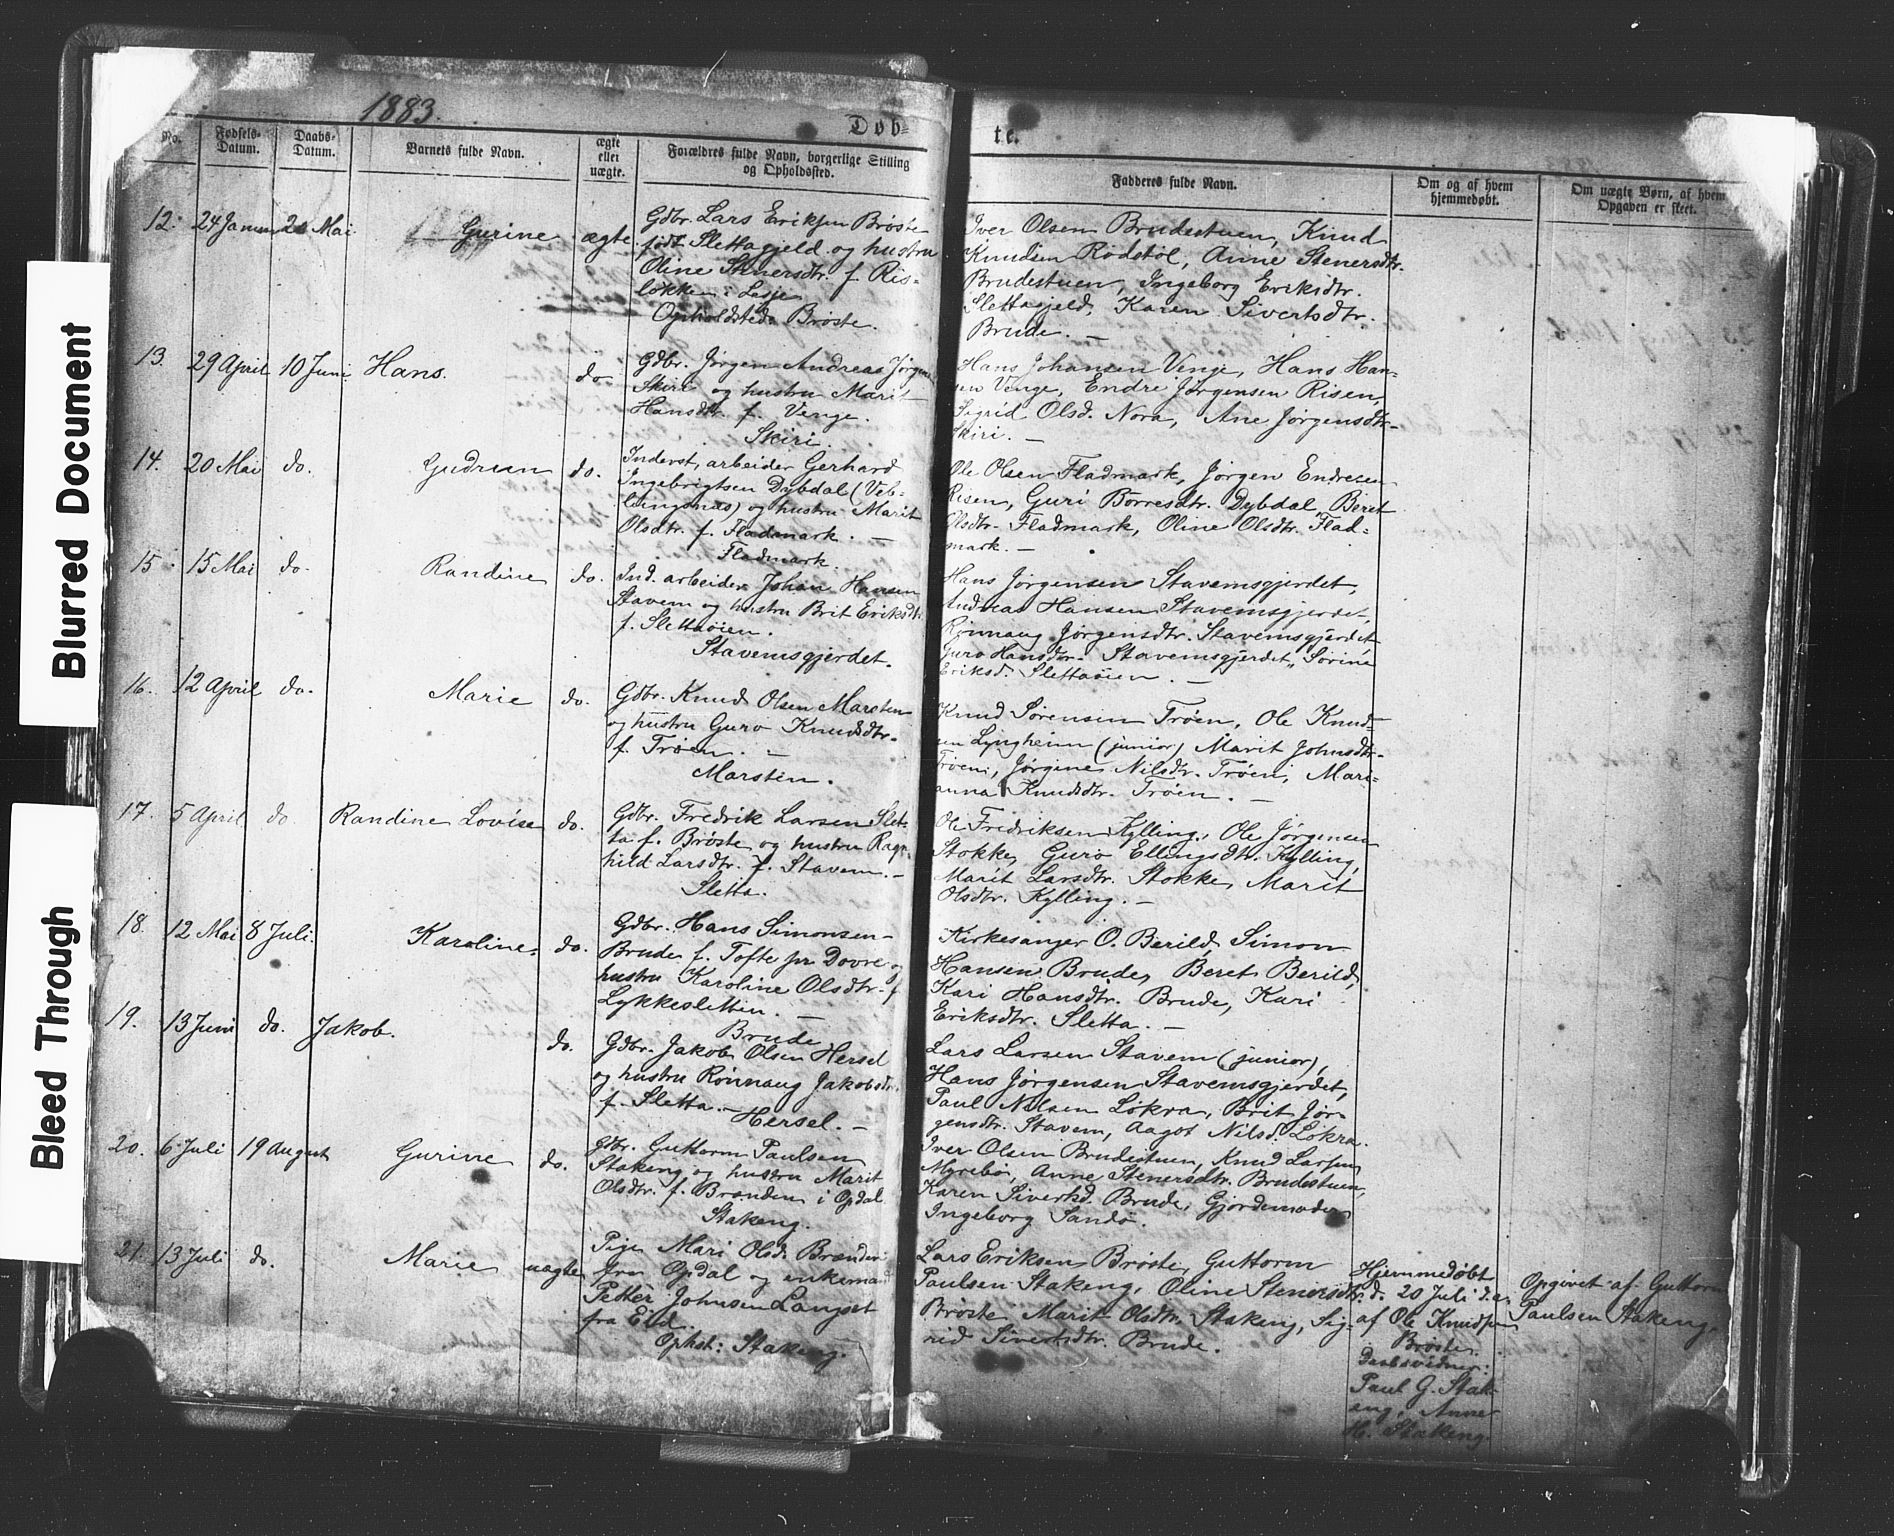 Blurred Document
Bleed Through
1883.
Døb=
te.
No.
Fødsels-
Datum.
Daabs-
Datum.
Barnets fulde Navn.
ægte
eller
uægte.
Forældres fulde Navn, borgerlige Stilling
og Opholdssted.
Fadderes fulde Navn.
Om og af hvem
hjemmedøbt.
Om uægte Børn, af hvem
Opgaven er skeet.
12. 24 Januar Mai Gurine ægte
Gdbr. Lars Eriksen Brøste
født Slettagjeld og hustru
Oline Stenersdtr. f. Ris-
løkken i Lesje
Opholdssted Brøste.
Iver Olsen Brudestuen, Knud
Knudsen Rødstøl, Anne Stenersdtr.
Brudestuen, Ingeborg Eriksdtr.
Slettagjeld, Karen Sivertsdtr.
Brude. —
13. 29 April 10 Juni Hans. do
Gdbr. Jørgen Andreas Jørgens
Skiri og hustru Marit
Hansdtr f. Venge.
Skiri.
Hans Johansen Venge, Hans Han-
sen Venge, Endre Jørgensen Risen,
Sigrid Olsd. Nora, Ane Jørgensdtr.
Skiri. —
14. 20 Mai do. Gudrun do.
Inderst, arbeider Gerhard
Ingebrigtsen Dybdal (Veb-
lungsnes) og hustru Marit
Olsdtr. f. Fladmark. —
Fladmark.
Ole Olsen Fladmark, Jørgen Endresen
Risen, Guri Børresdtr. Dybdal, Beret
Olsdtr. Fladmark, Oline Olsdtr. Flad-
mark. —
15 15 Mai do. Randine do.
Ind. arbeider Johan Hansen
Stavem og hustru Brit Eriksdt.
f. Slettaøien.
Stavemsgjerdet.
Hans Jørgensen Stavemsgjerdet,
Andreas Hansen Stavemsgjerdet,
Rønnaug Jørgensdtr. Stavemsgjerdet
Guro Hansdtr. Stavemsgjerdet, Sørine
Eriksd. Slettaøien. —
16. 12 April do. Marie do.
Gdbr. Knud Olsen Marsten
og hustru Guro Knudsdtr.
f. Trøen. —
Marstein.
Knud Sørensen Trøen, Ole Knud-
sen Lyngheim (junior) Marit Johnsdtr.
Trøen, Jørgine Nilsdtr. Trøen, Mari-
anna Knudsdtr. Trøen. —
17. 5 April do. Randine Lovise do.
Gdbr. Fredrik Larsen Slet-
ta f. Brøste og hustru Ragn-
hild Larsdtr. f. Stavem. —
Sletta.
Ole Fredriksen Kylling, Ole Jørgensen
Stokke, Guro Ellingsdtr. Kylling,
Marit Larsdtr. Stokke, Marit
Olsdtr. Kylling. —
18. 12 Mai 8 Juli. Karoline. do.
Gdbr. Hans Simonsen
Brude f. Tofte pr Dovre og
hustru Karoline Olsdtr. f.
Lykkesletten. —
Brude
Kirkesanger O. Berild, Simon
Hansen Brude, Beret Berild,
Kari Hansdtr. Brude, Kari
Eriksdtr. Sletta. —
19. 13 Juni do. Jakob. do.
Gdbr. Jakob Olsen Hersel
og hustru Rønnaug Jakobsdtr.
f. Sletta. —
Hersel. —
Lars Larsen Stavem (junior),
Hans Jørgensen Stavemsgjerdet,
Paul Nilsen Løkra, Brit Jør-
gensdtr. Stavem, Aagot Nilsd. Løkra.
20. 6 Juli 19 August Gurine do.
Gdbr. Guttorm Paulsen
Stakeng og hustru Marit
Olsdtr. f. Brænden i Opdal
Stakeng.
Iver Olsen Brudestuen, Knud Larsen
Myrebø, Anne Stenersdtr. Brudestuen,
Karen Sivertsd. Brude, Gjordemoder
Ingeborg Sandø.
21. 13 Juli do. Marie uægte
Pige Mari Olsd. Brænden
fra Opdal og enkemand
Petter Johnsen Langset
fra Eid.
Opkst: Stakeng.
Lars Eriksen Brøste, Guttorm
Paulsen Stakeng, Oline Stenersdtr.
Brøste, Marit Olsdtr. Stakeng, Sig-
rid Sivertsdtr. Brude.
Hjemmedøbt
d. 20 Juli d.a.
af Ole Knudsen
Brøste.
Daabsvidner:
Paul G. Stak-
eng, Anne
H. Stakeng.
Opgivet af Guttorm
Paulsen Stakeng.